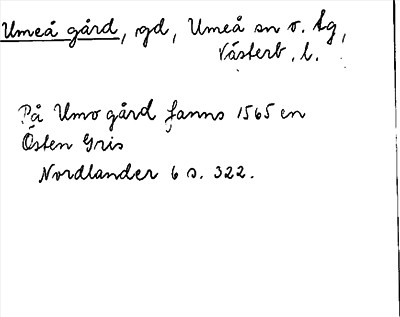 Umeå gård, gd, Umeå sn o. tg,
Västerb. l.
På Umo gård fanns 1565 en
Östen Gris
Nordlander 6 s. 322.